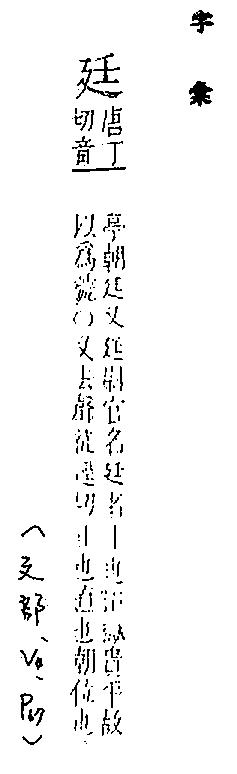 字彙
廷
唐丁
切音
亭朝廷又廷尉官名廷者平也治獄貴平故
以爲號○又去聲徒逕切正也直也朝位也